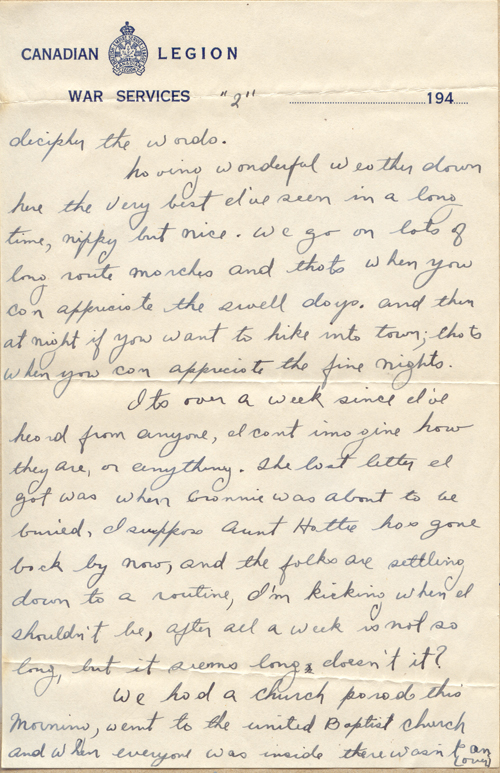 CANADIAN LEGION
WAR SERVICES "2" 194
decipher the words.
having wonderful weather down
here the very best I've seen in a long
time, nippy but nice. We go on lots of
long route marches and thats when you
can appreciate the swell days. and then
at night if you want to hike into town; thats
when you can appreciate the fine nights.
Its over a week since I've
heard from anyone, I cant imagine how
they are, or anything. The last letter I
got was when Grannie was about to be
buried, I suppose Aunt Hattie has gone
back by now, and the folks are settling
down to a routine, I'm kicking when I
shouldn't be, after all a week is not so
long, but it seems long, doesn't it?
We had a church parade this
Morning, went to the united Baptist church
and when everyone was inside there wasn't an